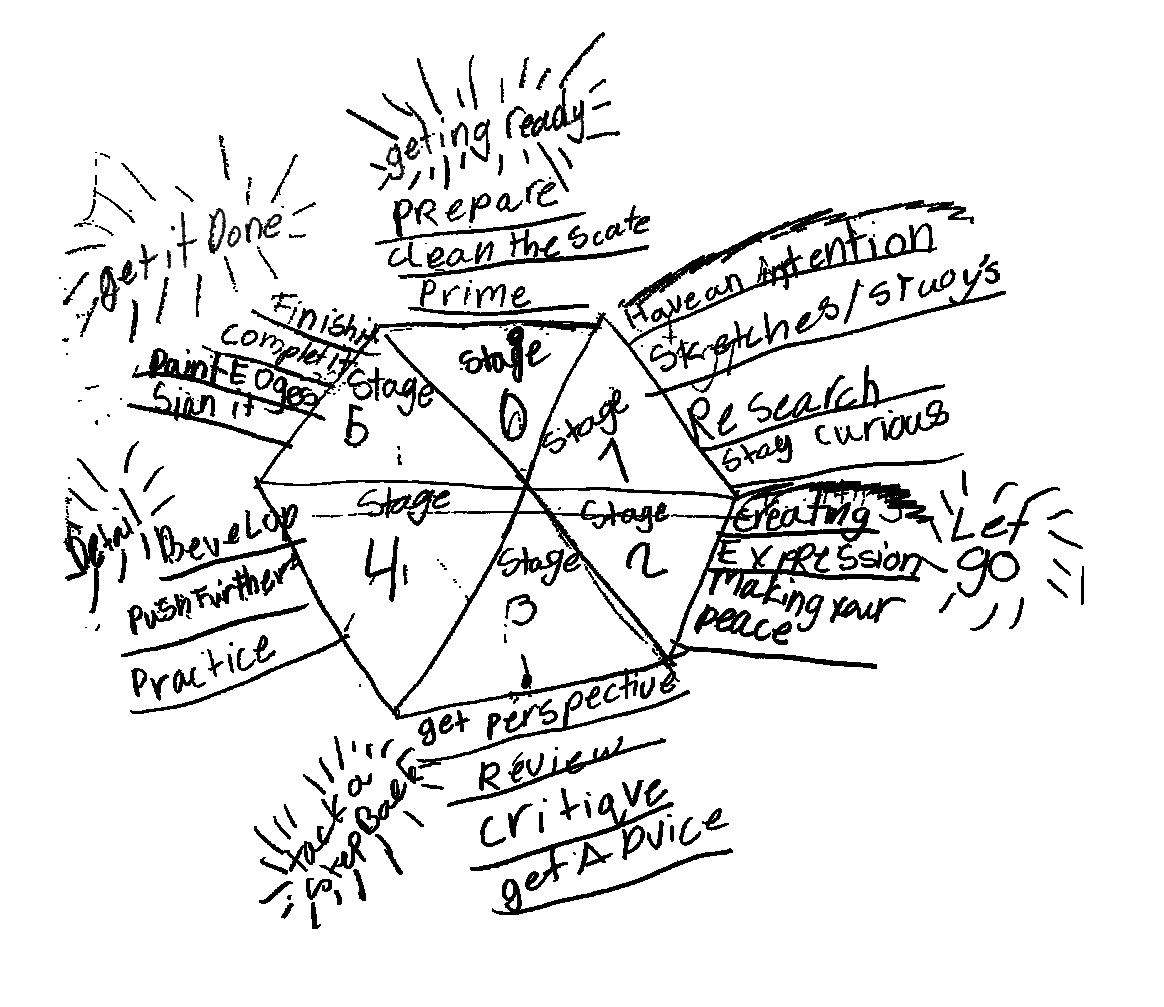 geting ready
PRepare
clean the scate
Prime
Stage
0
Have an intention
Sketches/stuoy's
Research
Stay curious
Stage
1
Let
go
Creating
Expression
Making your
peace
Stage
2
Stage
3
get perspective
Review
critique
get ADvice
tack a
step Back
Stage
4
Detail
DeveLop
Push Further
Practice
Stage
5
get it Done
Finish it
complet it
Paint EDges
Sian it